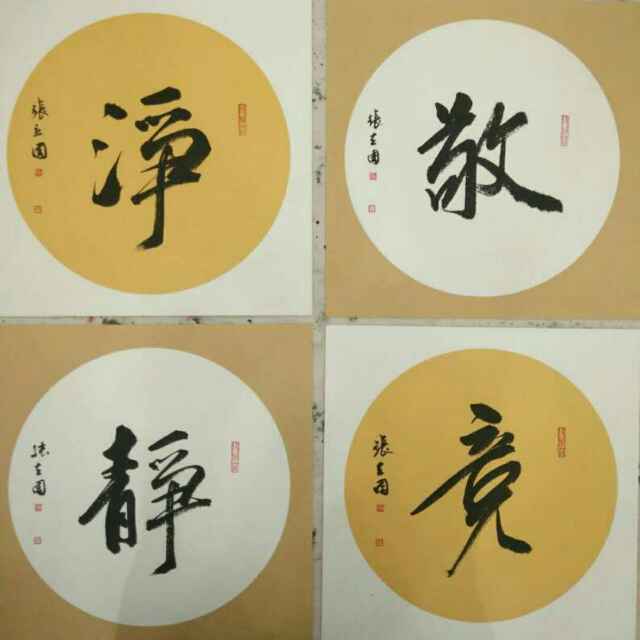 淨
張立國
敬
張立國
靜
張立國
竟
張立國